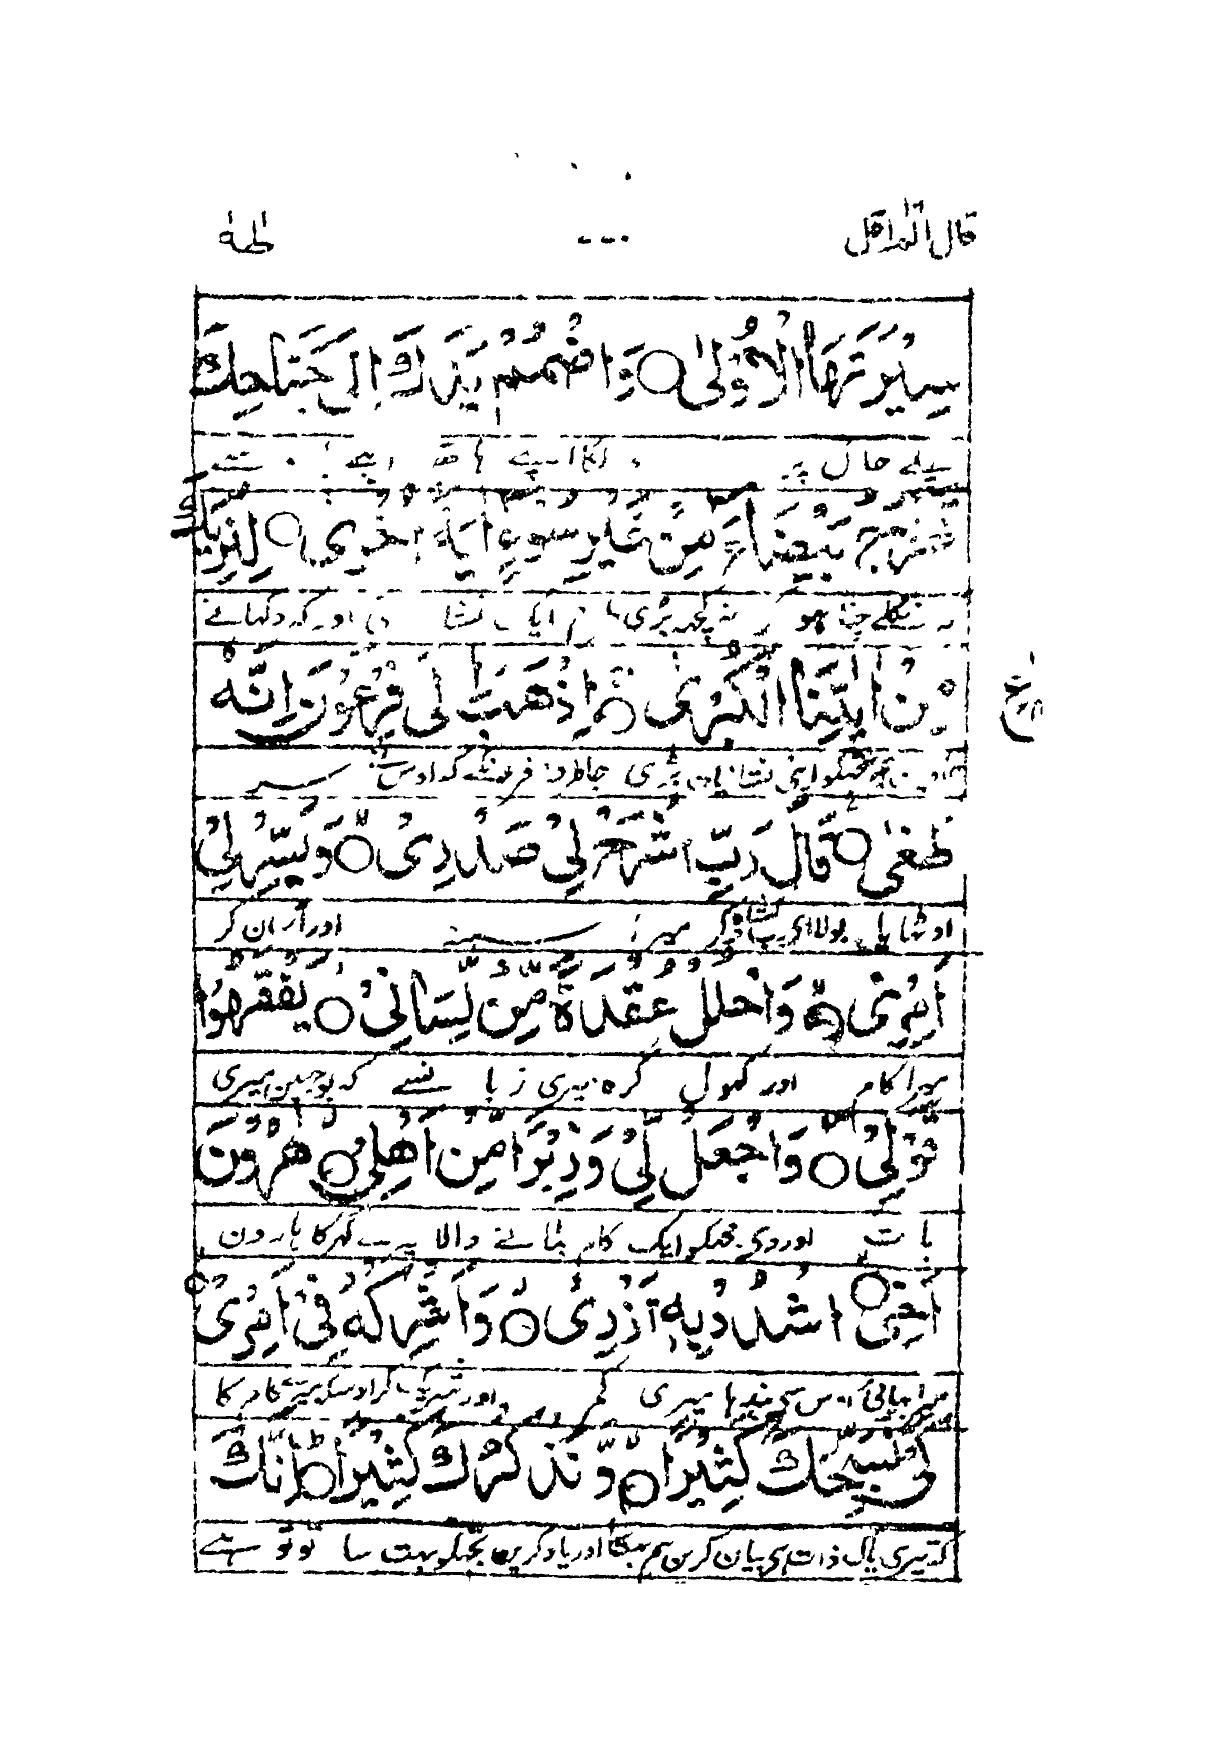 قال الم اقل طٰهٰ
سِيْرَتَهَا الْاُوْلٰى ○ وَاضْمُمْ يَدَكَ اِلٰى جَنَاحِكَ
پہلے حال پر لگا اپنے ہاتھ اپنے
تَخْرُجْ بَيْضَآءَ مِنْ غَيْرِ سُوْٓءٍ اٰيَةً اُخْرٰى ○ لِنُرِيَكَ
نکلے چٹا ہو نہ کچھ بڑی ایک نشانی اور کہ دکھاتے
مِنْ اٰيٰتِنَا الْكُبْرٰى ○ اِذْهَبْ اِلٰى فِرْعَوْنَ اِنَّهٗ
ہیں ہم تجھکو اپنی نشانیاں بڑی جا طرف فرعونکے کہ اوس نے سر
طَغٰى ○ قَالَ رَبِّ اشْرَحْ لِىْ صَدْرِىْ ○ وَيَسِّرْ لِىْ
اوٹھایا بولا ای رب کشادہ کر میرا سینہ اور آسان کر
اَمْرِىْ ○ وَاحْلُلْ عُقْدَةً مِّنْ لِّسَانِىْ ○ يَفْقَهُوْا
میرا کام اور کھول گرہ میری زبانسے کہ بوجھیں میری
قَوْلِىْ ○ وَاجْعَلْ لِّىْ وَزِيْرًا مِّنْ اَهْلِىْ ○ هٰرُوْنَ
بات اور دی مجھکو ایک کام بٹانے والا میرے گھر کا ہارون
اَخِى ○ اشْدُدْ بِهٖٓ اَزْرِىْ ○ وَاَشْرِكْهُ فِىْٓ اَمْرِىْ ○
میرا بھائی اوس سی بندھا میری کمر اور شریک کر اوسکو میرے کام کا
كَىْ نُسَبِّحَكَ كَثِيْرًا ○ وَّنَذْكُرَكَ كَثِيْرًا ○ اِنَّكَ
کہ تیری پاک ذات ہی بیان کریں ہم بہت سا اور یاد کریں تجھکو بہت سا تو تو ہے